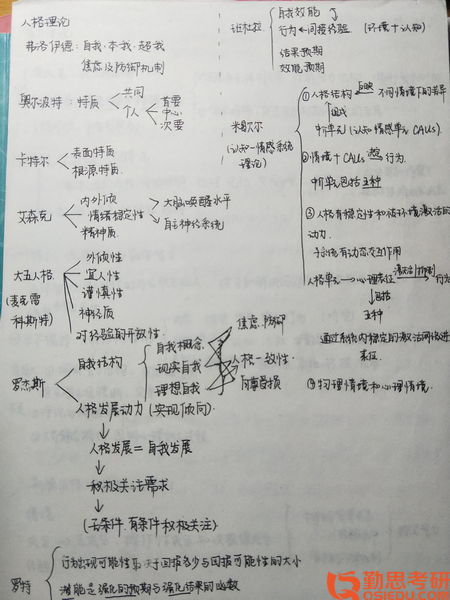 人格理论
弗洛伊德:自我·本我·超我
焦虑及防御机制
奥尔波特:特质
共同
个人
首要
中心
次要
卡特尔
表面特质
根源特质
艾森克
内外倾
情绪稳定性
精神质
大脑唤醒水平
自主神经系统
大五人格
(麦克雷
科斯特)
外倾性
宜人性
谨慎性
神经质
对经验的开放性
罗杰斯
自我结构
自我概念
现实自我
理想自我
焦虑、防御
人格一致性
人格发展动力(实现倾向)
人格发展=自我发展
积极关注需求
(无条件,有条件积极关注)
罗特
行为出现可能性取决于回报多少与回报可能性的大小
潜能是强化的预期与强化结果的函数
班杜拉
自我效能
行为
间接经验 (环境+认知)
结果预期
效能预期
米歇尔
(认知-情感系统
理论)
①人格结构
不同情境下的差异
组成
中介单元(认知情感单元 CAUs)
②情境+CAUs
行为
中介单元包括五种
③人格有稳定性和循环激活的
动力
子系统有动态交互作用
人格单元
心理表征
激活/抑制
行为
包括
五种
通过系统内稳定的激活网络进
表征
④物理情境和心理情境
勤思考研
QSIEDU.COM